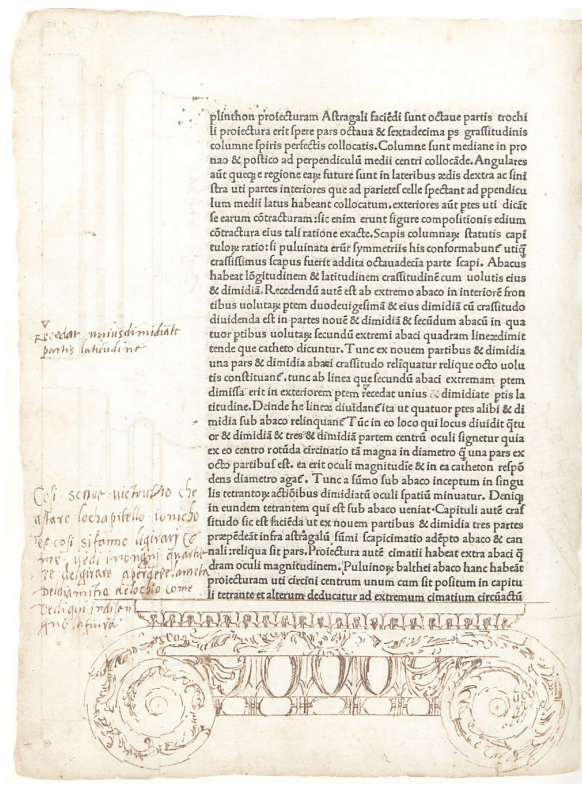 plinthon proiecturam Astragali faciēdi sunt octaue partis trochi
li proiectura erit spere pars octaua & sextadecima ps grassitudinis
columne spiris perfectis collocatis. Columne sunt mediane in pro
nao & postico ad perpendiculū medii centri collocāde. Angulares
aūt queqꝫ e regione eaꝝ future sunt in lateribus ædis dextra ac sini
stra uti partes interiores que ad parietes celle spectant ad ppendicu
lum medii latus habeant collocatum. exteriores aūt ptes uti dicāt
se earum cōtracturam: sic enim erunt figure compositionis edium
cōtractura eius tali ratione exacte. Scapis columnaꝝ statutis capi
tuloꝝ ratio: si puluinata erūt symmetriis his conformabunt̃ utiq̄
crassissimus scapus fuerit addita octauadecīa parte scapi. Abacus
habeat lōgitudinem & latitudinem crassitudinē cum uolutis eius
& dimidiā. Recedendū autē est ab extremo abaco in interiorē fron
tibus uolutaꝝ ptem duodeuigesimā & eius dimidiā cū crassitudo
diuidenda est in partes nouē & dimidiā & secūdum abacū in qua
tuor ptibus uolutaꝝ secūdum extremi abaci quadram lineædimit
tende que catheto dicuntur. Tunc ex nouem partibus & dimidia
una pars & dimidia abaci crassitudo reliquatur relique octo uolu
tis constituant̃. tunc ab linea que secundū abaci extremam ptem
dimissa erit in exteriorem ptem recedat unius & dimidiate ptis la
titudine. Deinde he lineæ diuidant̃ ita ut quatuor ptes alibi & di
midia sub abaco relinquant̃ Tūc in eo loco qui locus diuidit q̄tu
or & dimidiā & tres & dimidiā partem centrū oculi signetur quia
ex eo centro rotūda circinatio tā magna in diametro q̄ una pars ex
octo partibus est. ea erit oculi magnitudīe & in ea catheton respō
dens diametro agat̃. Tunc a sūmo sub abaco inceptum in singu
lis tetrantoꝝ actiōibus dimidiatū oculi spatiū minuatur. Deniqꝫ
in eundem tetrantem qui est sub abaco ueniat. Capituli autē craf
situdo sic est faciēda ut ex nouem partibus & dimidia tres partes
præpēdeāt infra astrāgalū sūmi scapicimatio adēpto abaco & can
nali: reliqua sit pars. Proiectura autē cimatii habeat extra abaci q̄
dram oculi magnitudinem. Puluinoꝝ balthei abaco hanc habeāt
proiecturam uti circini centrum unum cum sit positum in capitu
li tetrante et alterum deducatur ad extremum cimatium circūactū
recedat unius dimidiate
partis latitudine
Cosi scriue uictrubio che
affare lochapitello ionicho